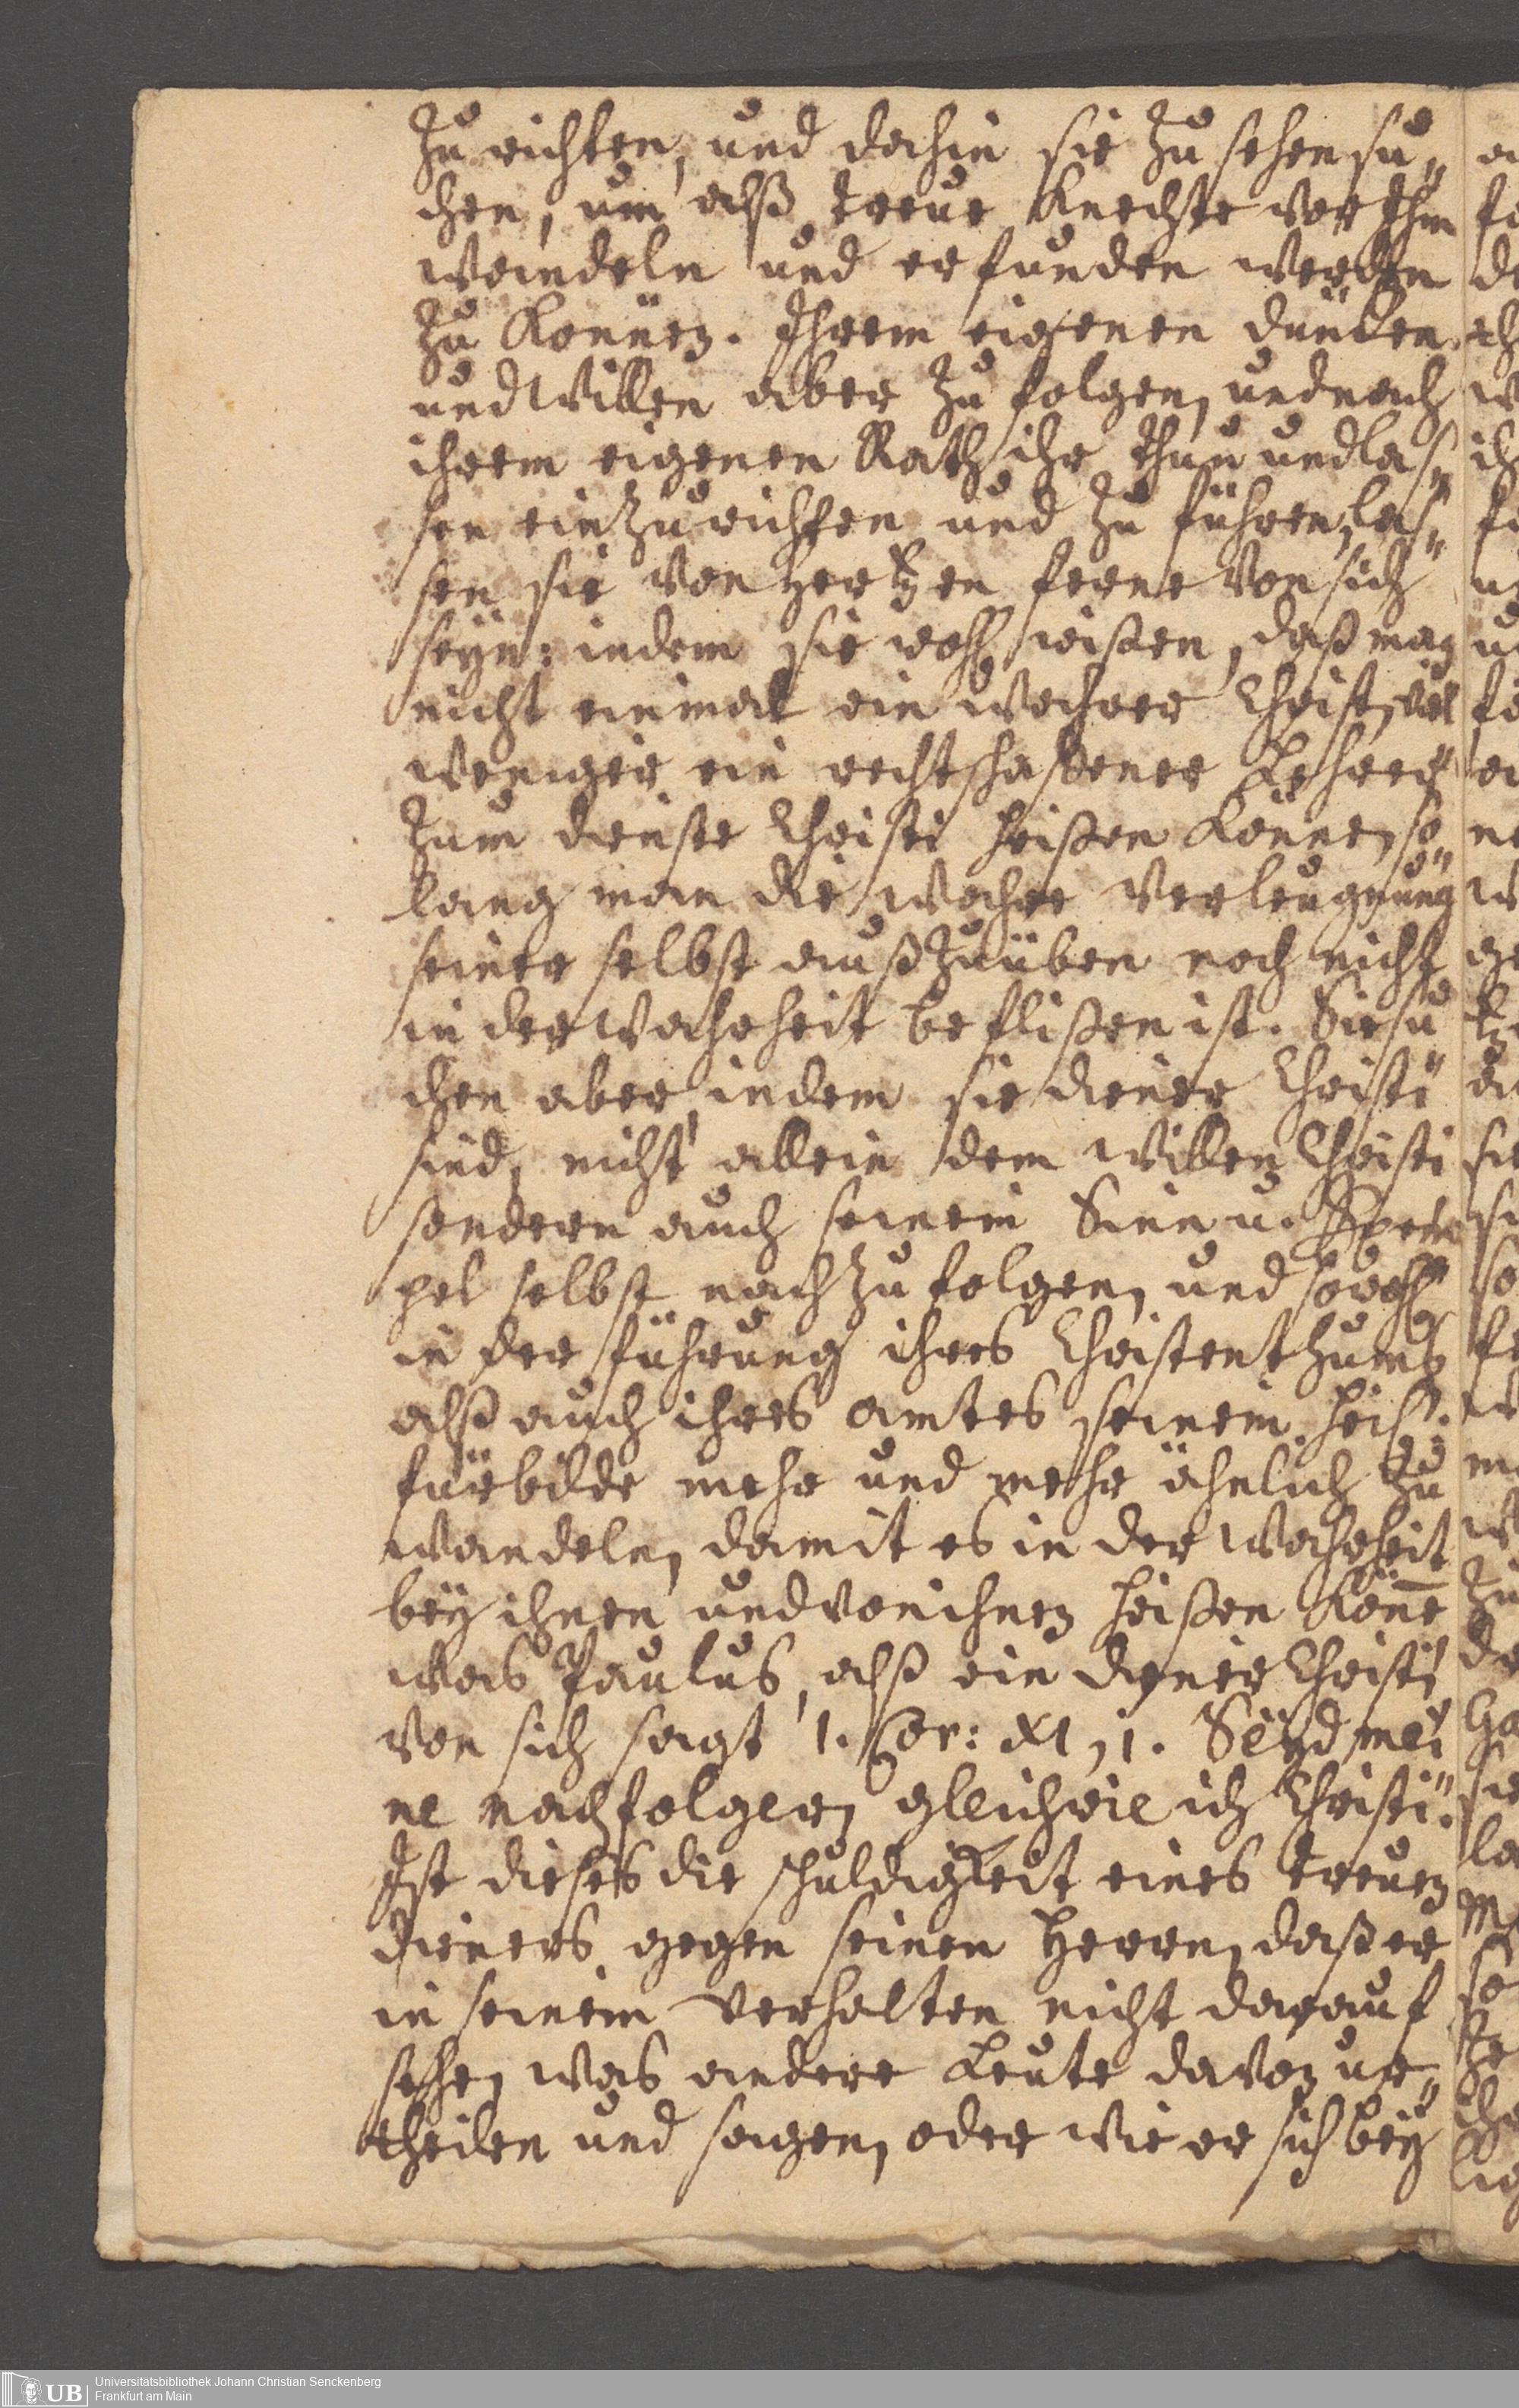 zu richten, und dahin sie zu sehen su„
chen, um alß treue Knechte vor Ihm
wandeln und erfunden werden
zu können. Ihrem eigenen dünken
und Willen aber zu folgen, und nach
ihrem eigenen Rath ihr thun und las„
sen einzurichten und zu führen, las„
sen sie von Hertzen ferne von sich
seyn: indem sie wohl wißen, daß man
nicht einmal ein wahrer Christ, viel
weniger ein rechtschaffener Lehrer
zum dienste Christi heißen könne, so
lang man die wahre Verleugnung
seiner selbst außzuüben noch nicht
in der Wahrheit beflißen ist. Sie su
chen aber, indem sie diener Christi
sind, nicht allein dem Willen Christi
sondern auch seinem Sinn u. Exem
pel selbst nachzufolgen, und sowohl
in der führung ihres Christenthums
alß auch ihres amtes seinem heil.
fürbilde mehr und mehr ähnlich zu
wandeln, damit es in der Wahrheit
bey ihnen und von ihnen heißen könne
was Paulus, alß ein diener Christi
von sich sagt 1. Cor: XI, 1. Seyd mei
ne nachfolger, gleichwie ich Christi.
Ist dieses die schuldigkeit eines treuen
dieners gegen seinen Herrn, daß er
in seinem Verhalten nicht darauf
sehe, was andere Leute davon ur„
theilen und sagen, oder wie er sich bey
UB Universitätsbibliothek Johann Christian Senckenberg
Frankfurt am Main